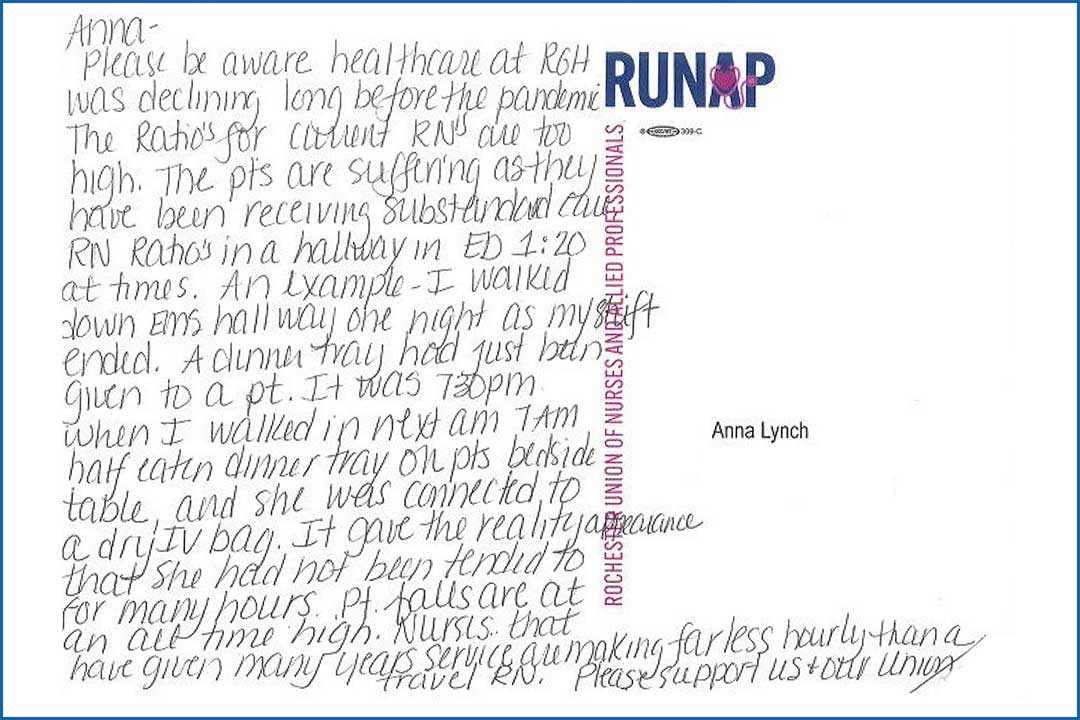 Anna-
Please be aware healthcare at RGH
was declining long before the pandemic
The Ratio's for current RN's are too
high. The pts are suffering as they
have been receiving substandard care
RN Ratio's in a hallway in ED 1:20
at times. An example - I walked
down EMS hallway one night as my shift
ended. A dinner tray had just been
given to a pt. It was 730pm.
when I walked in next am 7AM
half eaten dinner tray on pts bedside
table, and she was connected to
a dry IV bag. It gave the reality appearance
that she had not been tended to
for many hours. Pt. falls are at
an all time high. Nurses that
have given many years service are making far less hourly than a
travel RN. Please support us + our Union
RUNAP
309-C
ROCHESTER UNION OF NURSES AND ALLIED PROFESSIONALS
Anna Lynch